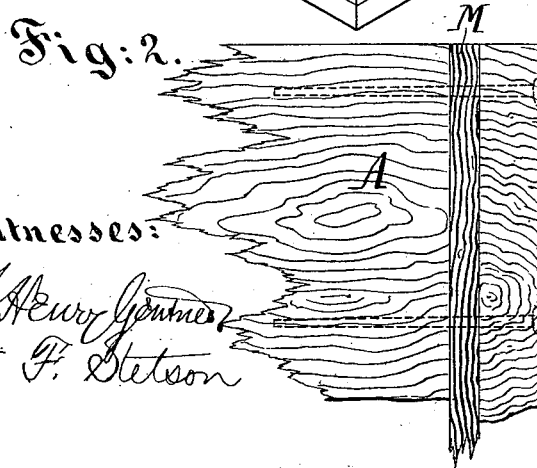 M
Fig:2.
A
tnesses:
Henry Gentner
F. Stetson